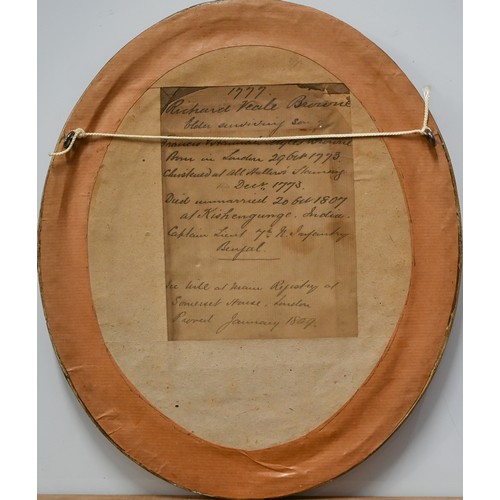 1777.
Richard Veale Browne
Elder surviving Son
Born in London 29 Oct 1773.
Christened at All Hallows
Decr 1773.
Died unmarried 20 Oct 1807
at Kishengunge. India.
Captain Lieut 7th N. Infantry
Bengal
Will at Registry at
Somerset House, London
Proved January 1809.